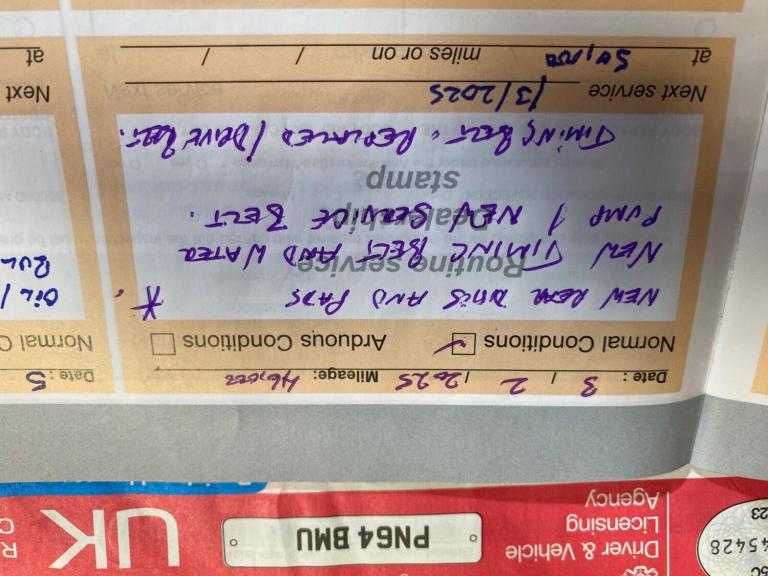 Date: 3 / 2 / 2025 Mileage: 46,000
Normal Conditions ✓ Arduous Conditions
NEW REAR DISCS AND PADS *
Routine service
NEW TIMING BELT AND WATER
Dealership
PUMP / NEW SERVICE BELT.
stamp
TIMING BELT. REPLACED / DRIVE BELT.
Next service /3/2025
at 50,000 miles or on / /
at
Date: 5
Normal C
OIL /
Next
at
Driver & Vehicle
Licensing
Agency
PN64 BMU
UK
45428
23